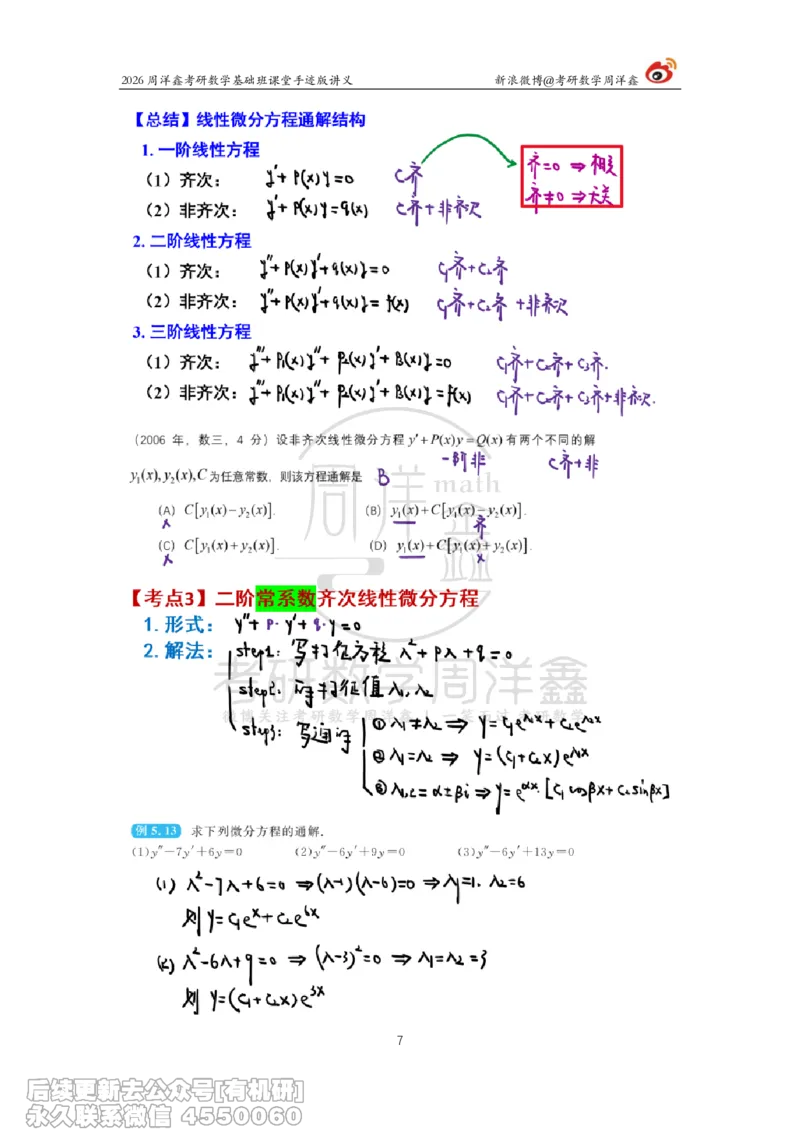 2026 周洋鑫考研数学基础班课堂手迹版讲义 新浪微博@考研数学周洋鑫
【总结】线性微分方程通解结构
1. 一阶线性方程
（1）齐次： y′+P(x)y=0 C齐
齐=0 ⇒相关
齐≠0 ⇒无关
（2）非齐次： y′+P(x)y=q(x) C齐+非齐次
2. 二阶线性方程
（1）齐次： y″+P(x)y′+q(x)y=0 C₁齐+C₂齐
（2）非齐次： y″+P(x)y′+q(x)y=f(x) C₁齐+C₂齐+非齐次
3. 三阶线性方程
（1）齐次： y‴+P₁(x)y″+P₂(x)y′+P₃(x)y=0 C₁齐+C₂齐+C₃齐.
（2）非齐次： y‴+P₁(x)y″+P₂(x)y′+P₃(x)y=f(x) C₁齐+C₂齐+C₃齐+非齐次.
（2006 年，数三，4 分）设非齐次线性微分方程 y′+P(x)y=Q(x) 有两个不同的解
一阶非 C齐+非
y₁(x),y₂(x),C 为任意常数，则该方程通解是 B
(A) C[y₁(x)−y₂(x)]. (B) y₁(x)+C[y₁(x)−y₂(x)].
x 齐
(C) C[y₁(x)+y₂(x)]. (D) y₁(x)+C[y₁(x)+y₂(x)].
x x
【考点3】二阶常系数齐次线性微分方程
1. 形式： y″+p·y′+q·y=0
2. 解法： step1: 写特征方程 λ²+pλ+q=0
step2: 得特征值λ₁,λ₂
step3: 写通解 ①λ₁≠λ₂ ⇒ y=C₁e^{λ₁x}+C₂e^{λ₂x}
②λ₁=λ₂ ⇒ y=(C₁+C₂x)e^{λ₁x}
③λ₁,₂=α±βi ⇒ y=e^{αx}·[C₁cosβx+C₂sinβx]
例 5.13 求下列微分方程的通解.
(1)y″−7y′+6y=0 (2)y″−6y′+9y=0 (3)y″−6y′+13y=0
(1) λ²−7λ+6=0 ⇒(λ−1)(λ−6)=0 ⇒λ₁=1. λ₂=6
则 y=C₁e^x+C₂e^{6x}
(2) λ²−6λ+9=0 ⇒ (λ−3)²=0 ⇒ λ₁=λ₂=3
则 y=(C₁+C₂x)e^{3x}
7
周洋鑫
math
考研数学周洋鑫
后续更新去公众号[有机研]
永久联系微信 4550060